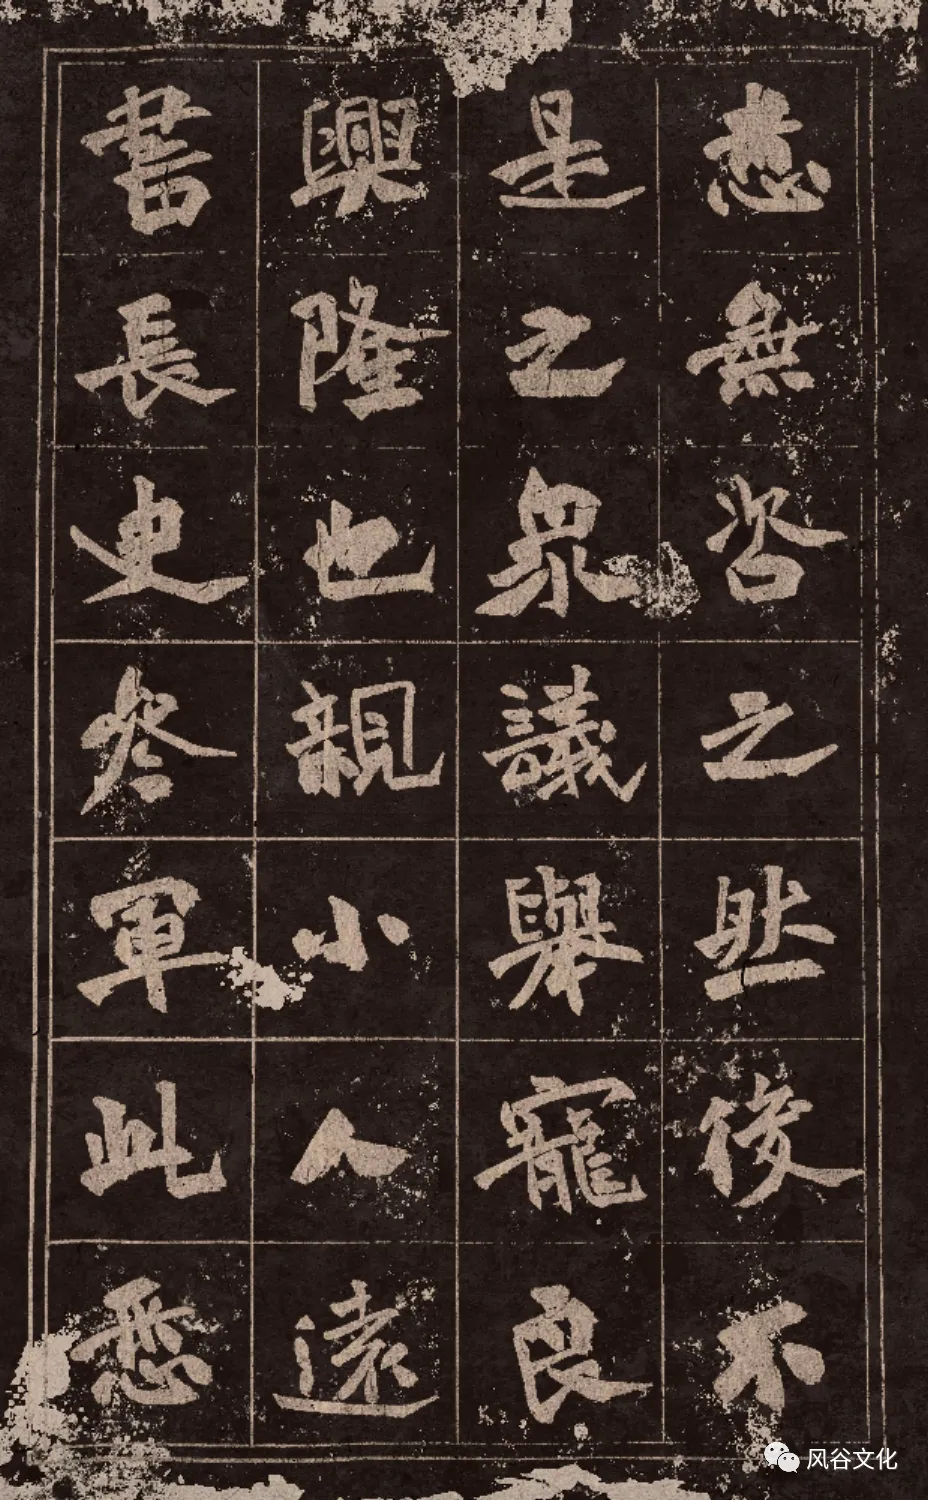 無咨之然後不
是之眾議舉寵良
興隆也親小人遠
書長史參軍此悉
风谷文化